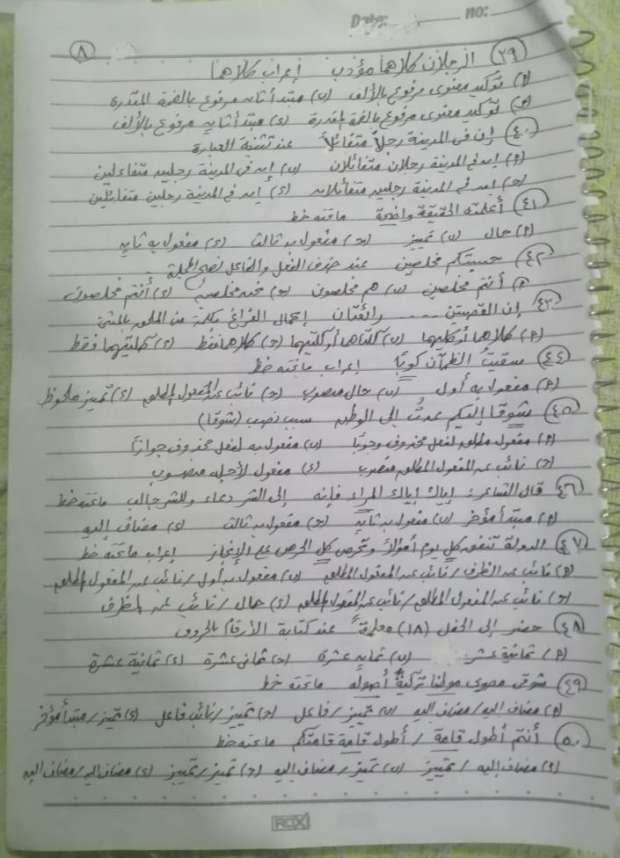 Date: no:
٨
(٣٩) الرجلان كلاهما مؤدب إعراب كلاهما
(P) توكيد معنوى مرفوع بالألف (ب) مبتدأ ثانٍ مرفوع بالضمة المقدرة
(ج) توكيد معنوى مرفوع بالضمة المقدرة (د) مبتدأ ثانٍ مرفوع بالألف
(٤٠) إن فى المدينة رجلاً متفائلاً عند تثنية العبارة
(P) إن فى المدينة رجلان متفائلان (ب) إن فى المدينة رجلين متفاءلين
(ج) إن فى المدينة رجلين متفائلان (د) إن فى المدينة رجلين متفائلين
(٤١) أعلمته الحقيقة واضحة ما تحته خط
(P) حال (ب) تمييز (ج) مفعول به ثالث (د) مفعول به ثانٍ
(٤٢) حسبتكم مخلصين عند حذف الفعل والفاعل تصبح الجملة
(P) أنتم مخلصين (ب) هم مخلصون (ج) نحن مخلصون (د) أنتم مخلصون
(٤٣) إن القصيدتين ---- رائعتان إكمال الفراغ مكانه من الملحق بالمثنى
(P) كلاهما أو كليهما (ب) كلتاهما أو كلتيهما (ج) كلاهما فقط (د) كلتيهما فقط
(٤٤) سقيت الظمآن كوبًا إعراب ما تحته خط
(P) مفعول به أول (ب) حال منصوب (ج) نائب عن المفعول المطلق (د) تمييز ملحوظ
(٤٥) شوقا إليكم عدت إلى الوطن سبب نصب (شوقا)
(P) مفعول مطلق لفعل محذوف وجوبا (ب) مفعول به لفعل محذوف جوازًا
(ج) نائب عن المفعول المطلق منصوب (د) مفعول لأجله منصوب
(٤٦) قال الشاعر: إياك إياك المراء فإنه إلى الشر دعاء وللشر جالب ما تحته خط
(P) مبتدأ مؤخر (ب) مفعول به ثانٍ (ج) مفعول به ثالث (د) مضاف إليه
(٤٧) الدولة تنفق كل يوم أموالاً وتحرص كل الحرص على الإنجاز إعراب ما تحته خط
(P) نائب عن الظرف / نائب عن المفعول المطلق (ب) مفعول به أول / نائب عن المفعول المطلق
(ج) نائب عن المفعول المطلق / نائب عن المفعول المطلق (د) حال / نائب عن الظرف
(٤٨) حضر إلى الحفل (١٨) معلمة عند كتابة الأرقام بالحروف
(P) ثمانية عشر (ب) ثمان عشرة (ج) ثمانى عشرة (د) ثمانية عشرة
(٤٩) شوقى مصرى مولدًا تركية أصوله ما تحته خط
(P) مضاف إليه / مضاف إليه (ب) تمييز / فاعل (ج) تمييز / نائب فاعل (د) تمييز / مبتدأ مؤخر
(٥٠) أنتم أطول قامة / أطول قامة قامتكم ما تحته خط
(P) مضاف إليه / تمييز (ب) تمييز / مضاف إليه (ج) تمييز / تمييز (د) مضاف إليه / مضاف إليه
ROX